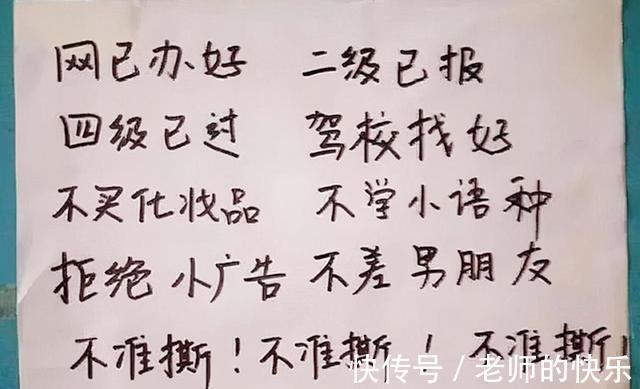 网已办好 二级已报
四级已过 驾校找好
不买化妆品 不学小语种
拒绝小广告 不差男朋友
不准撕！不准撕！不准撕！
快传号 / 老师的快乐